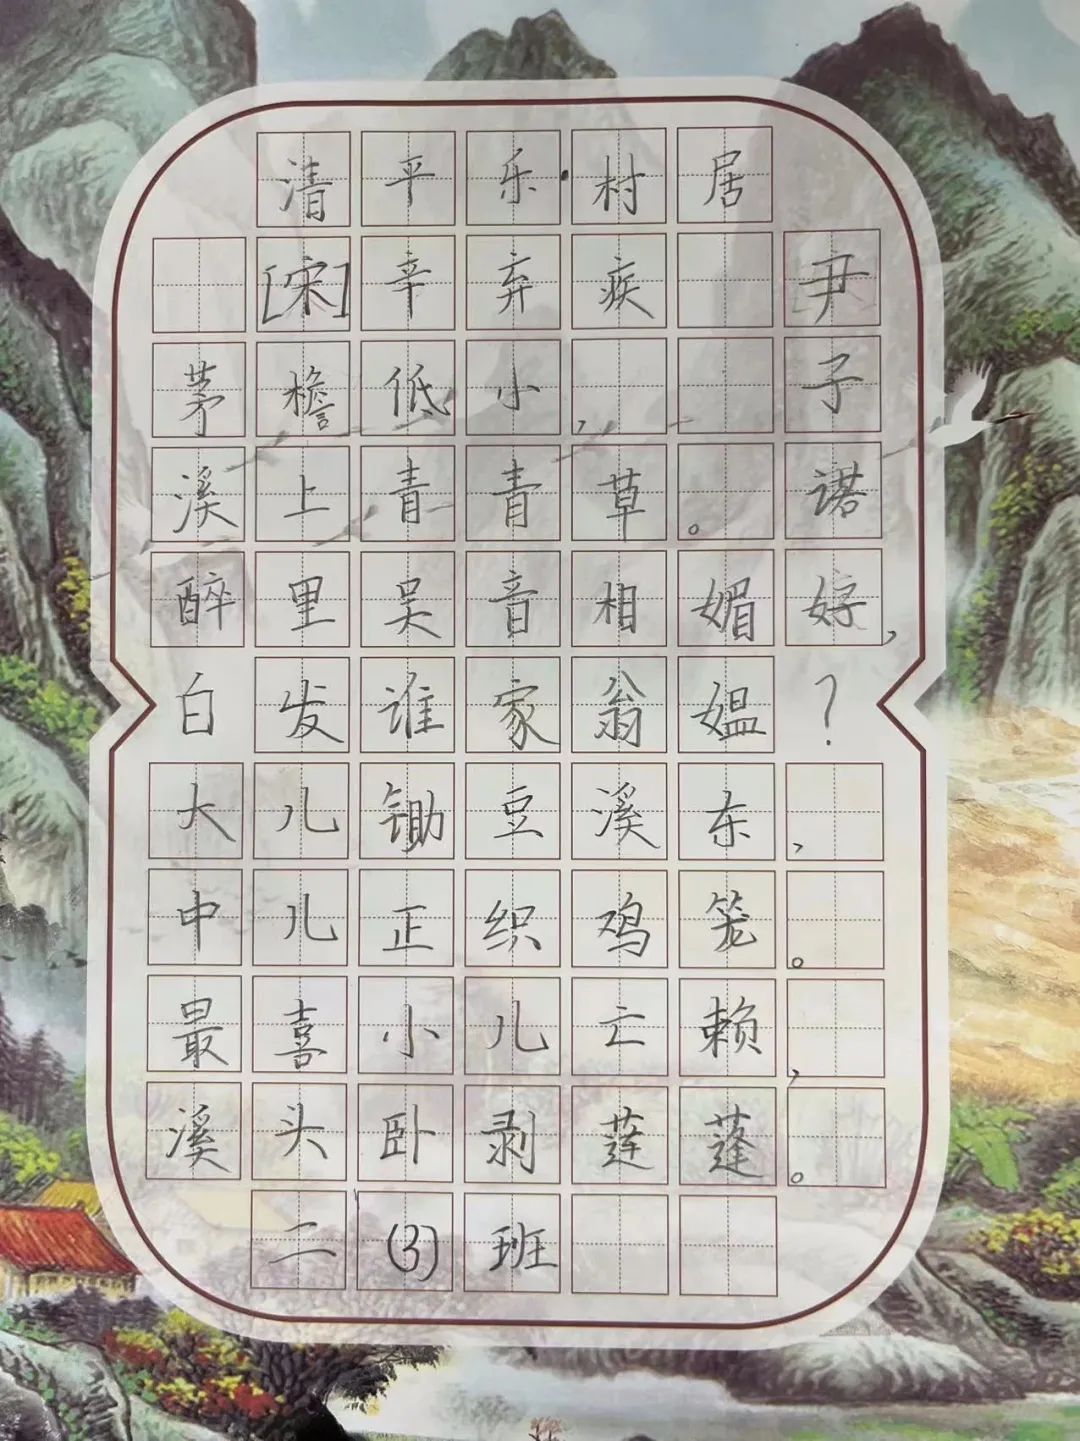 清平乐·村居
[宋]辛弃疾
尹子诺
茅檐低小，
溪上青青草。
醉里吴音相媚好，
白发谁家翁媪？
大儿锄豆溪东，
中儿正织鸡笼。
最喜小儿亡赖，
溪头卧剥莲蓬。
二(3)班